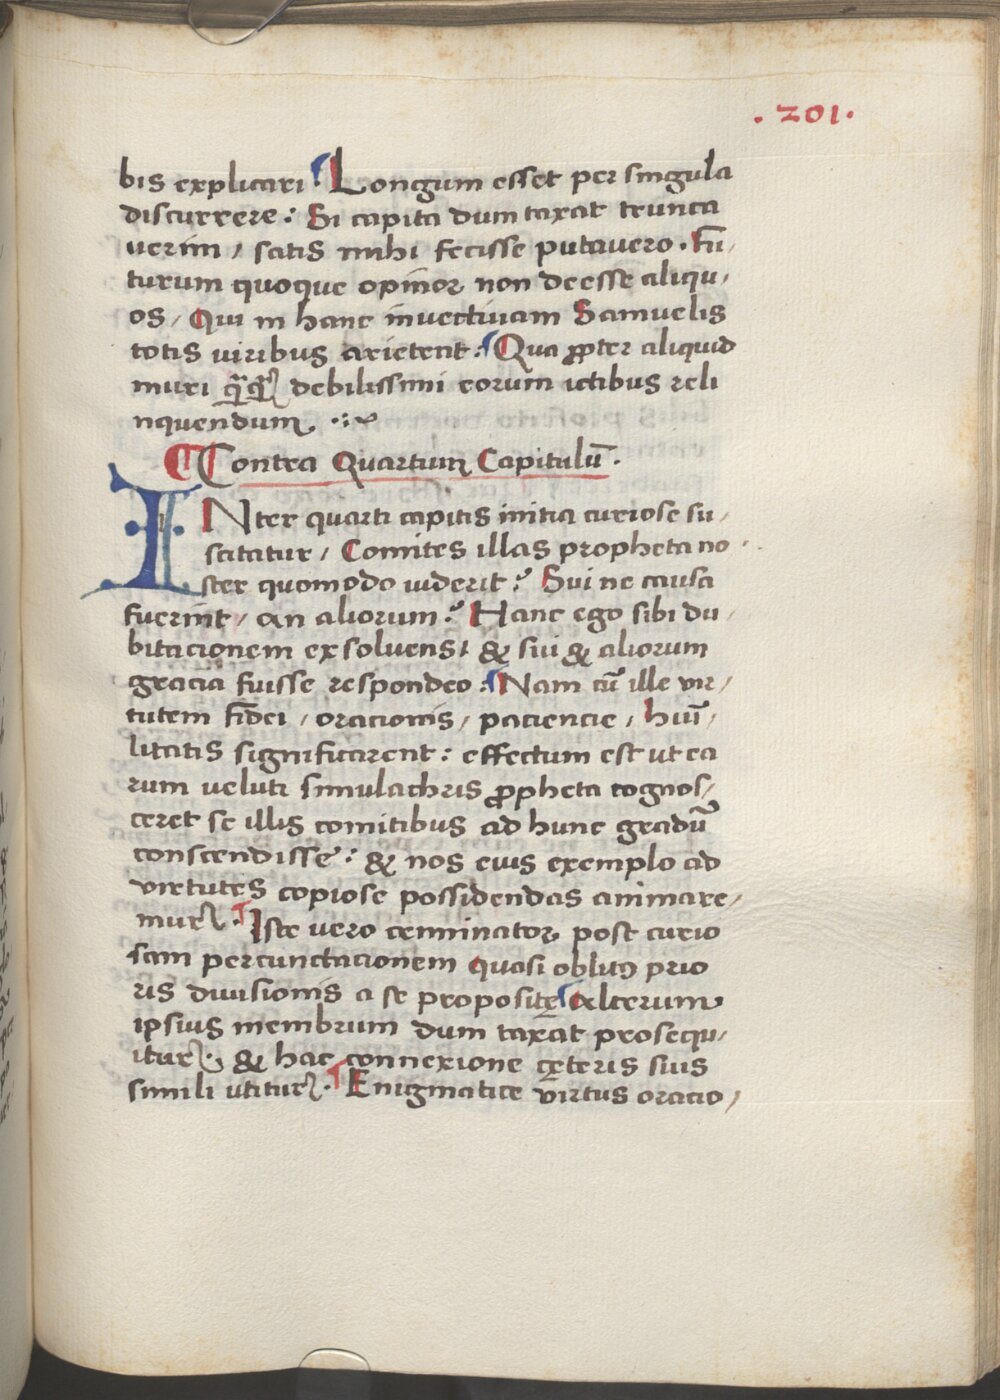 . 201.
bis explicari. Longum esset per singula
discurrere: Si capita dum taxat trunca
uerim / satis mihi fecisse putauero. Fu̅/
turum quoque opinor non deesse aliqu/
os / Qui in hanc inuectiuam Samuelis
totis viribus arietent: Qua ꝓpter aliquid
muri debilissimi eorum ictibus reli
nquendum.
Contra Quartum Capitulu̅.
INter quarti capitis initia curiose su/
scitatur / Comites illas propheta no
ster quomodo uiderit? Sui ne causa
fuerint / an aliorum? Hanc ego sibi du/
bitacionem exsoluens / & sui & aliorum
gracia fuisse respondeo: Nam cu̅ ille vir/
tutem fidei / oracionis / paciencie / humi̅/
litatis significarent: effectum est ut ea
rum ueluti simulachris ꝓpheta cognos/
ceret se illis comitibus ad hunc gradu̅
conscendisse: & nos eius exemplo ad
virtutes copiose possidendas animare/
mur. Iste uero criminator, post curio
sam percunctacionem quasi oblitꝰ prio
ris diuisionis a se proposite Alterum
ipsius membrum dum taxat prosequ/
itur: & hac connexione ceteris suis
simili utitur. Enigmatice virtus oracio/